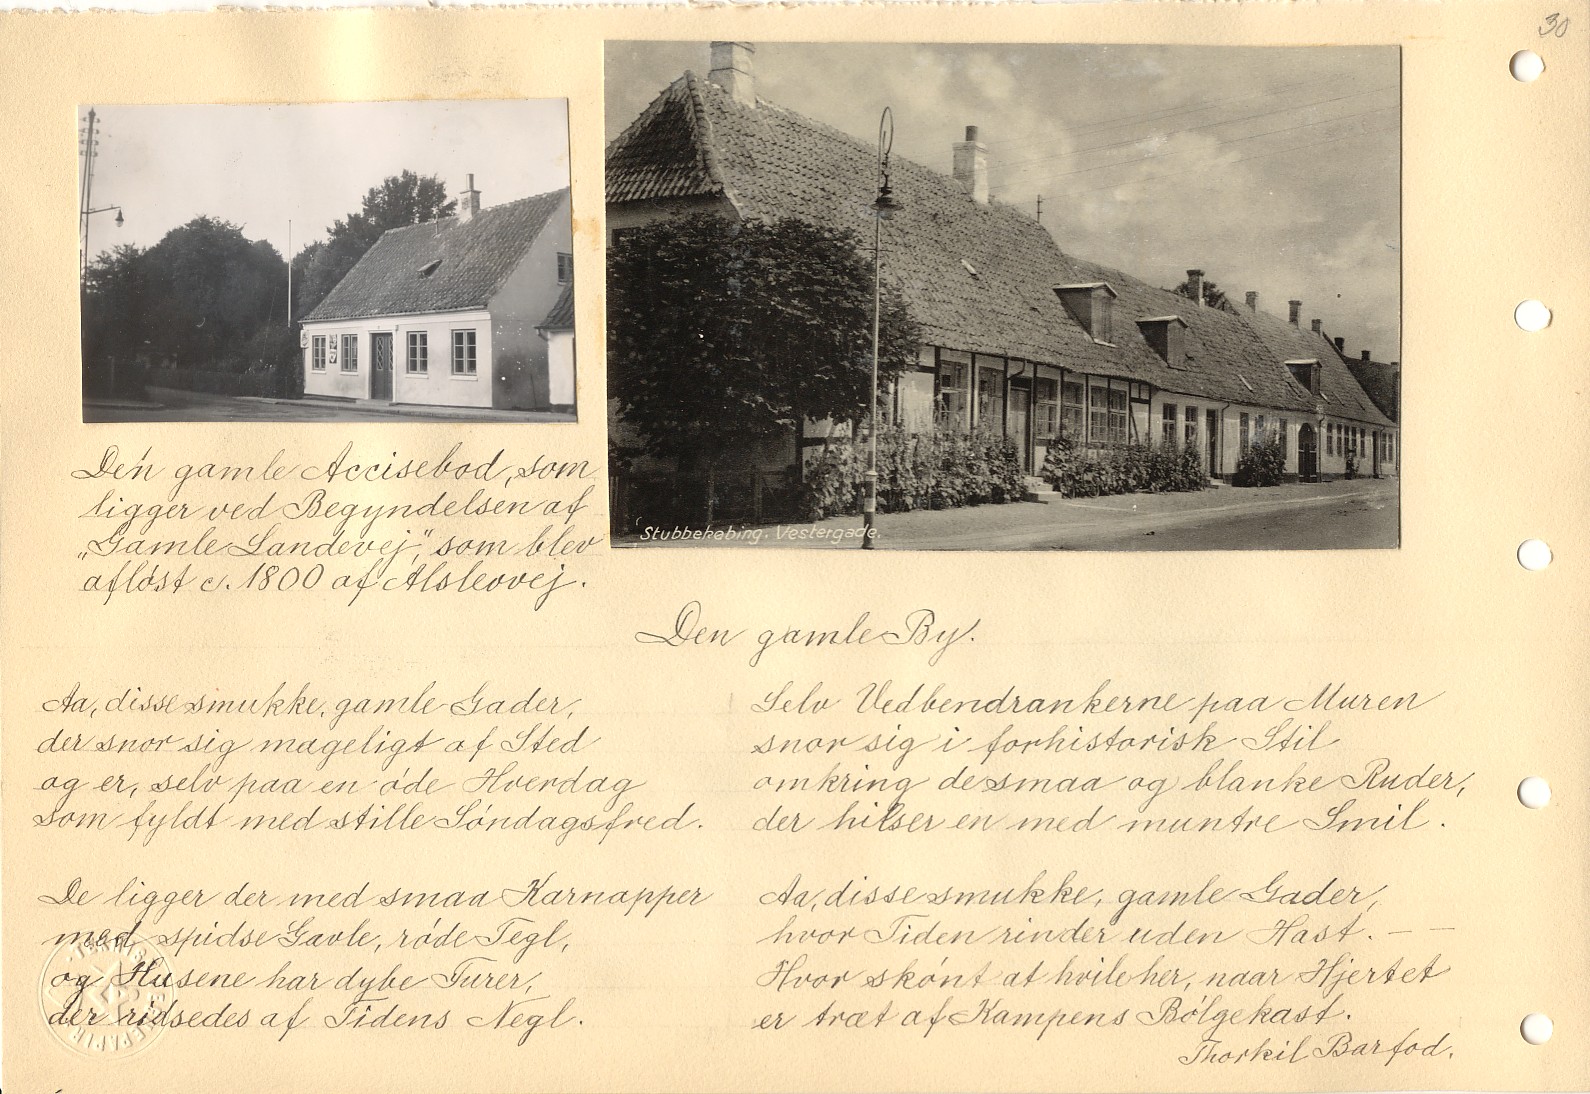 30
Den gamle Accisebod, som
ligger ved Begyndelsen af
„Gamle Landevej”, som blev
afløst c. 1800 af Alslevvej.
Stubbekøbing. Vestergade.
Den gamle By.
Aa, disse smukke, gamle Gader,
der snor sig mageligt af Sted
og er, selv paa en øde Hverdag
som fyldt med stille Søndagsfred.
De ligger der med smaa Karnapper
med spidse Gavle, røde Tegl,
og Husene har dybe Furer,
der ridsedes af Tidens Negl.
Selv Vedbendrankerne paa Muren
snor sig i forhistorisk Stil
omkring de smaa og blanke Ruder,
der hilser en med muntre Smil.
Aa, disse smukke, gamle Gader,
hvor Tiden rinder uden Hast. — —
Hvor skønt at hvile her, naar Hjertet
er træt af Kampens Bølgekast.
Thorkil Barfod.